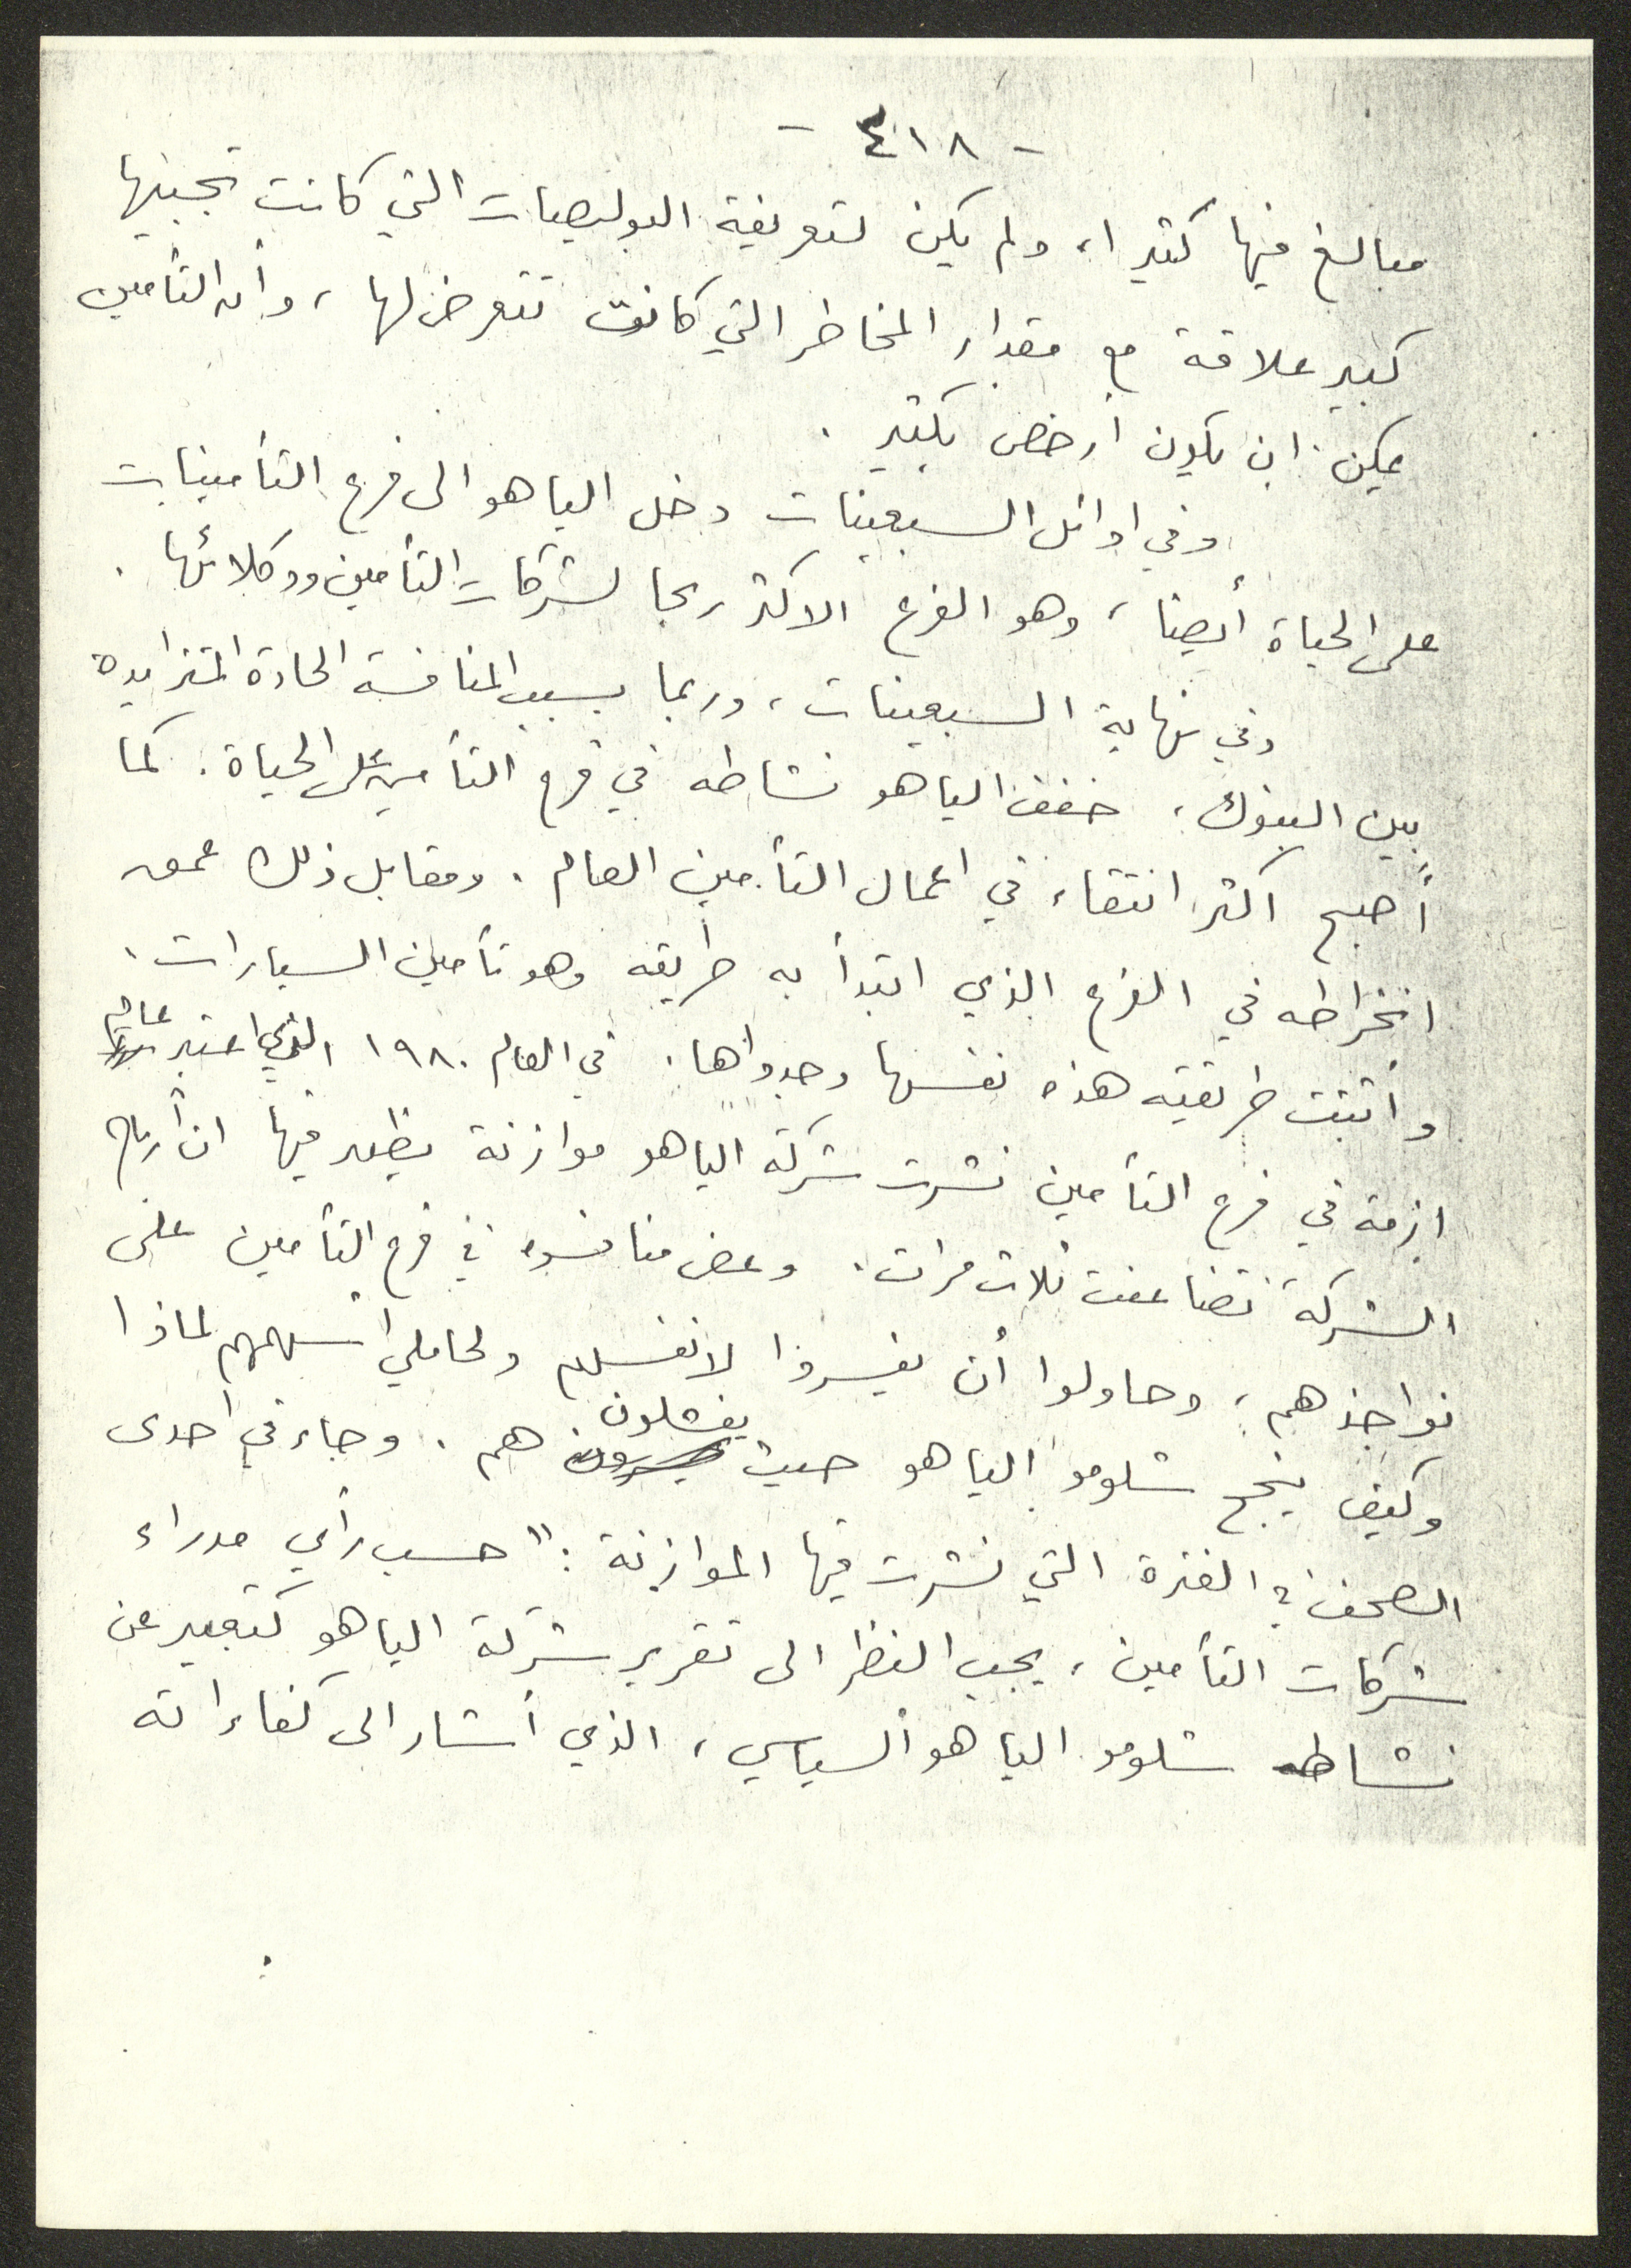 - ٤١٨ -
مبالغ فيها كثيرا، ولم يكن لتعريفة البوليصات التي كانت تجبيها
كبير علاقة مع مقدار المخاطر التي كانت تتعرض لها، وأن التأمين
يمكن ان يكون أرخص بكثير.
وفي اوائل السبعينات دخل الياهو الى فرع التأمينات
على الحياة أيضا، وهو الفرع الاكثر ربحا لشركات التأمين ووكلائها.
وفي نهاية السبعينات، وربما بسبب المنافسة الحادة المتزايدة
بين البنوك، خفف الياهو نشاطه في فرع التأمين على الحياة. كما
أصبح اكثر انتقاء في اعمال التأمين العام. ومقابل ذلك عمق
انخراطه في الفرع الذي ابتدأ به طريقه وهو تأمين السيارات.
وأثبتت طريقته هذه نفسها وجدواها. في العام ١٩٨٠ الذي اعتبر عام
ازمة في فرع التأمين نشرت شركة الياهو موازنة يظهر فيها ان أرباح
الشركة تضاعفت ثلاث مرات. وعض منافسوه في فرع التأمين على
نواجذهم، وحاولوا أن يفسروا لانفسهم ولحاملي أسهمهم لماذا
وكيف ينجح شلومو الياهو حيث يفشلون هم. وجاء في احدى
الصحف في الفترة التي نشرت فيها الموازنة: "حسب رأي مدراء
شركات التأمين، يجب النظر الى تقرير شركة الياهو كتعبير عن
نشاط شلومو الياهو السياسي، الذي أشار الى كفاءاته